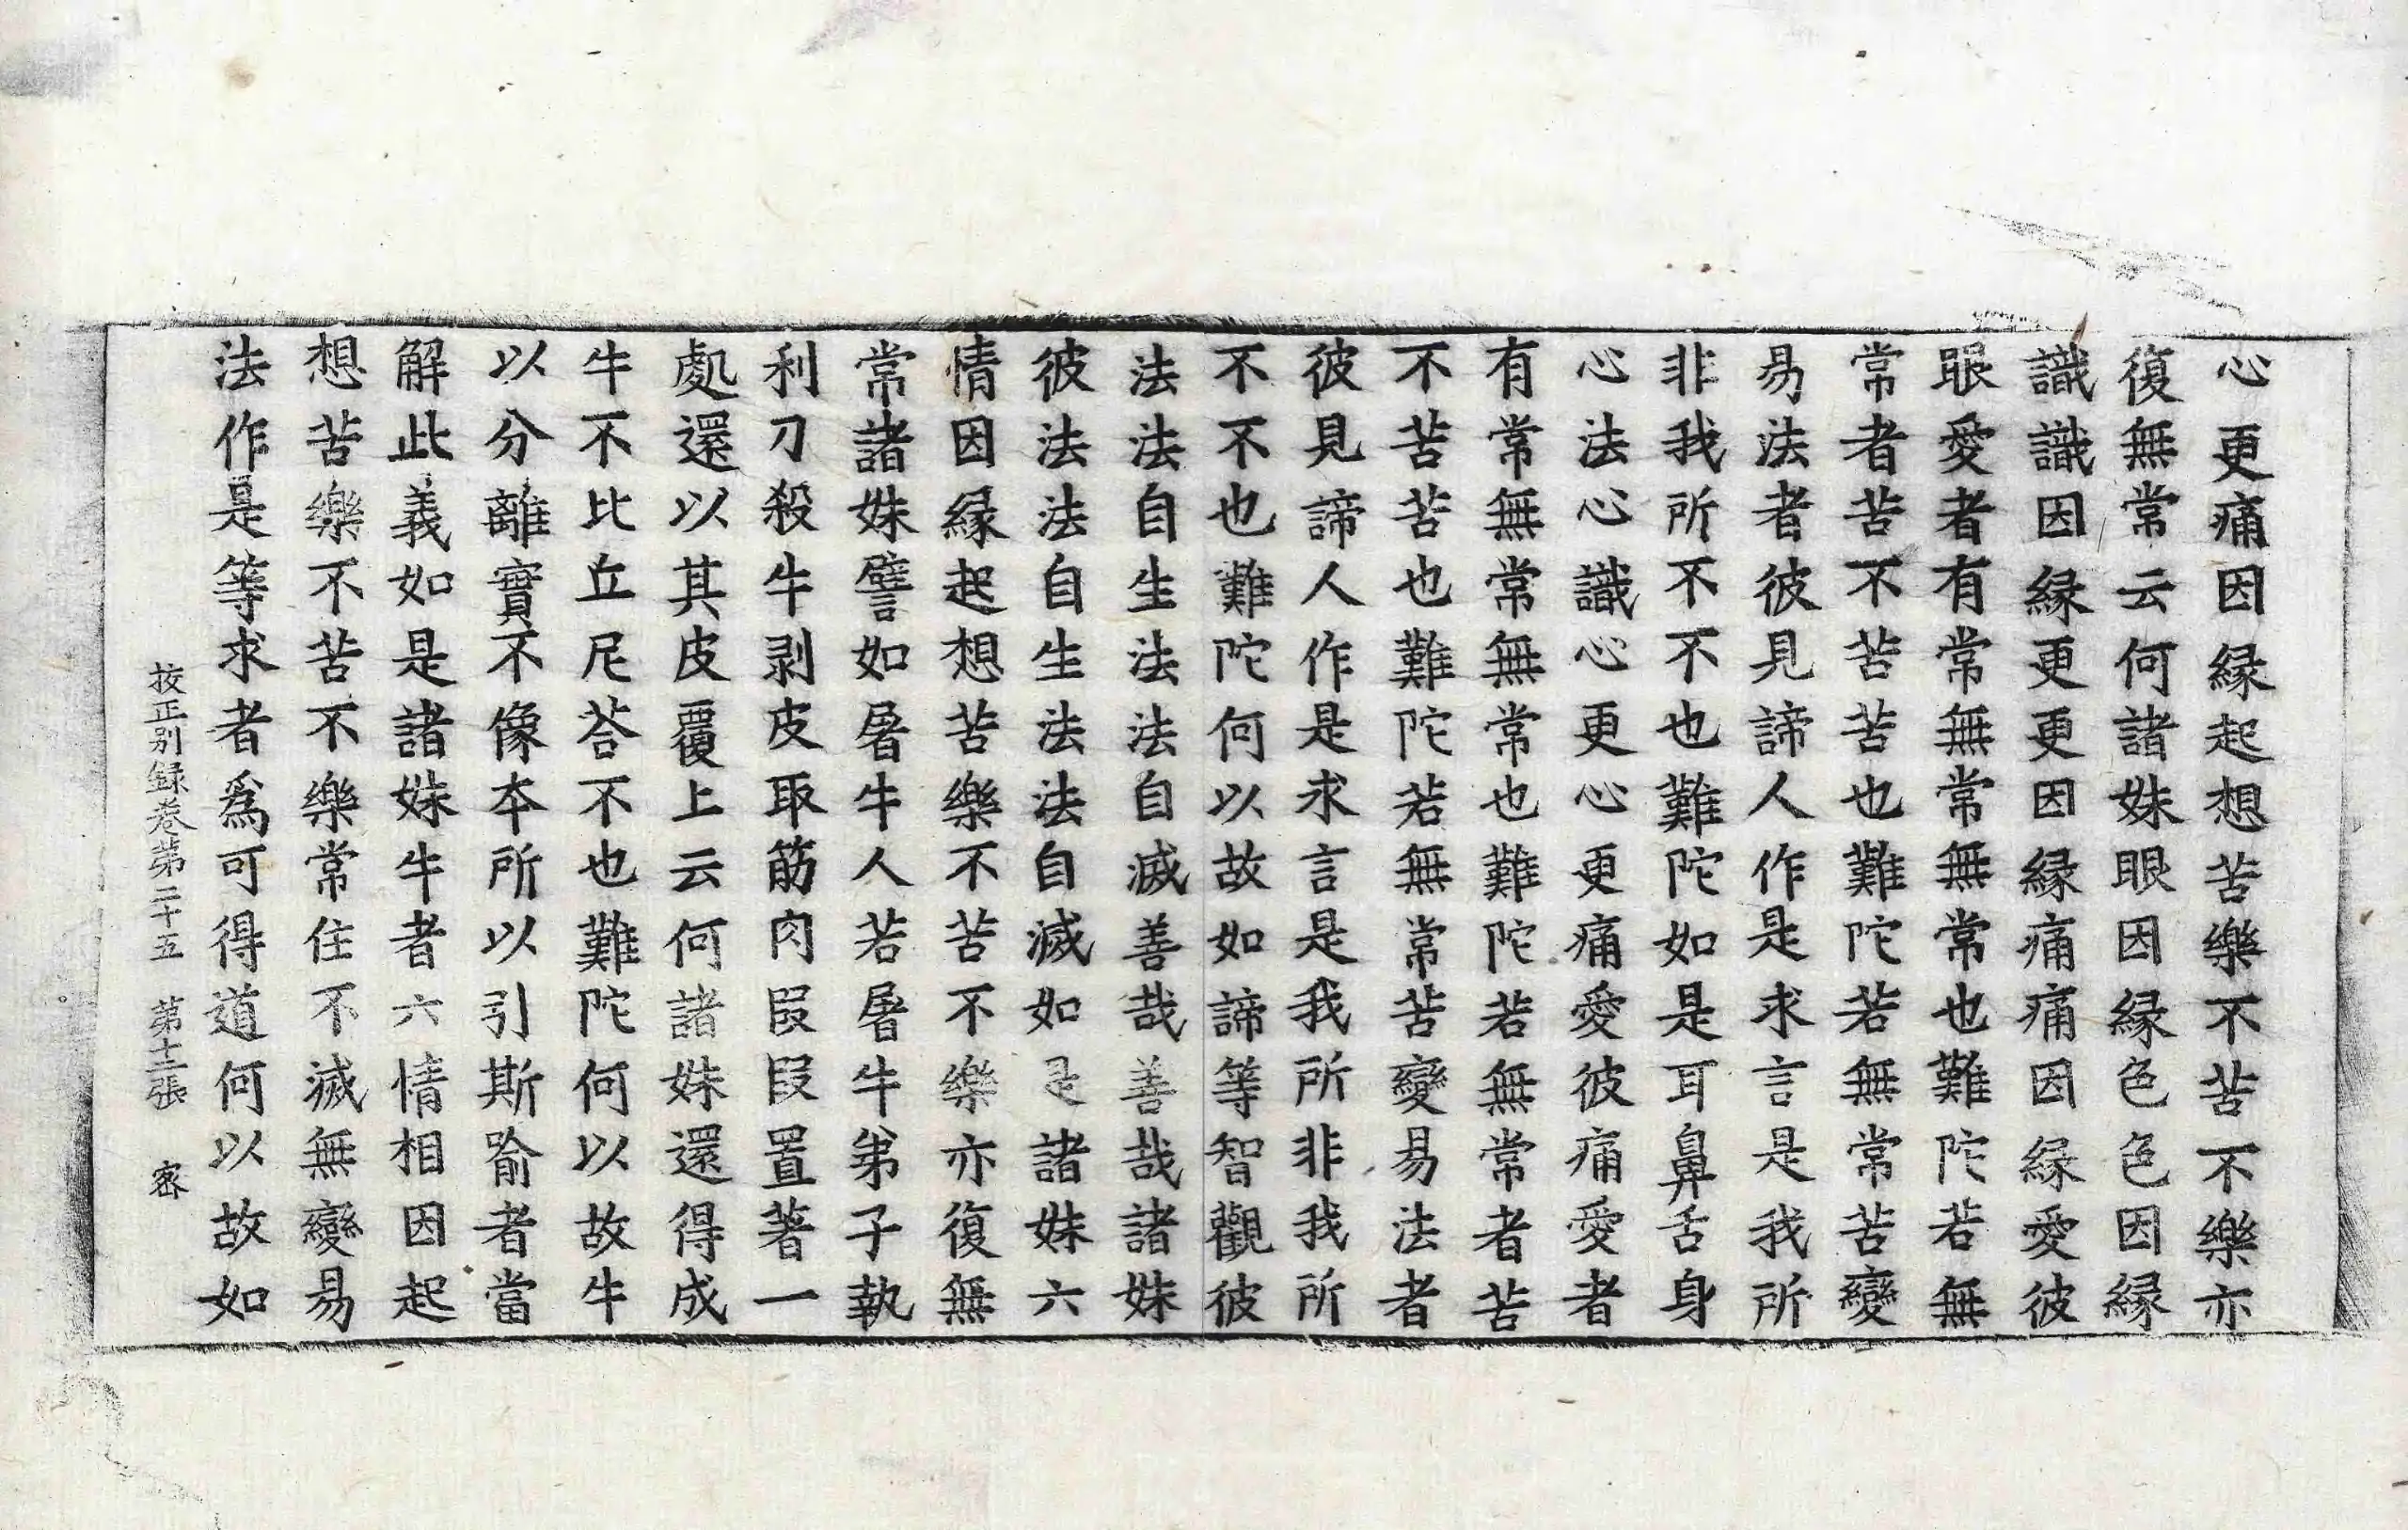 心更痛因縁起想苦樂不苦不樂亦
復無常云何諸妹眼因縁色色因縁
識識因縁更更因縁痛痛因縁愛彼
眼愛者有常無常無常也難陀若無
常者苦不苦苦也難陀若無常苦變
易法者彼見諦人作是求言是我所
非我所不不也難陀如是耳鼻舌身
心法心識心更心更痛愛彼痛愛者
有常無常無常也難陀若無常者苦
不苦苦也難陀若無常苦變易法者
彼見諦人作是求言是我所非我所
不不也難陀何以故如諦等智觀彼
法法自生法法自滅善哉善哉諸妹
彼法法自生法法自滅如是諸妹六
情因縁起想苦樂不苦不樂亦復無
常諸妹譬如屠牛人若屠牛弟子執
利刀殺牛剥皮取筋肉段段置著一
處還以其皮覆上云何諸妹還得成
牛不比丘尼荅不也難陀何以故牛
以分離實不像夲所以引斯喻者當
解此義如是諸妹牛者六情相因起
想苦樂不苦不樂常住不滅無變易
法作是等求者爲可得道何以故如
挍正别録卷第二十五 第十二張 宻